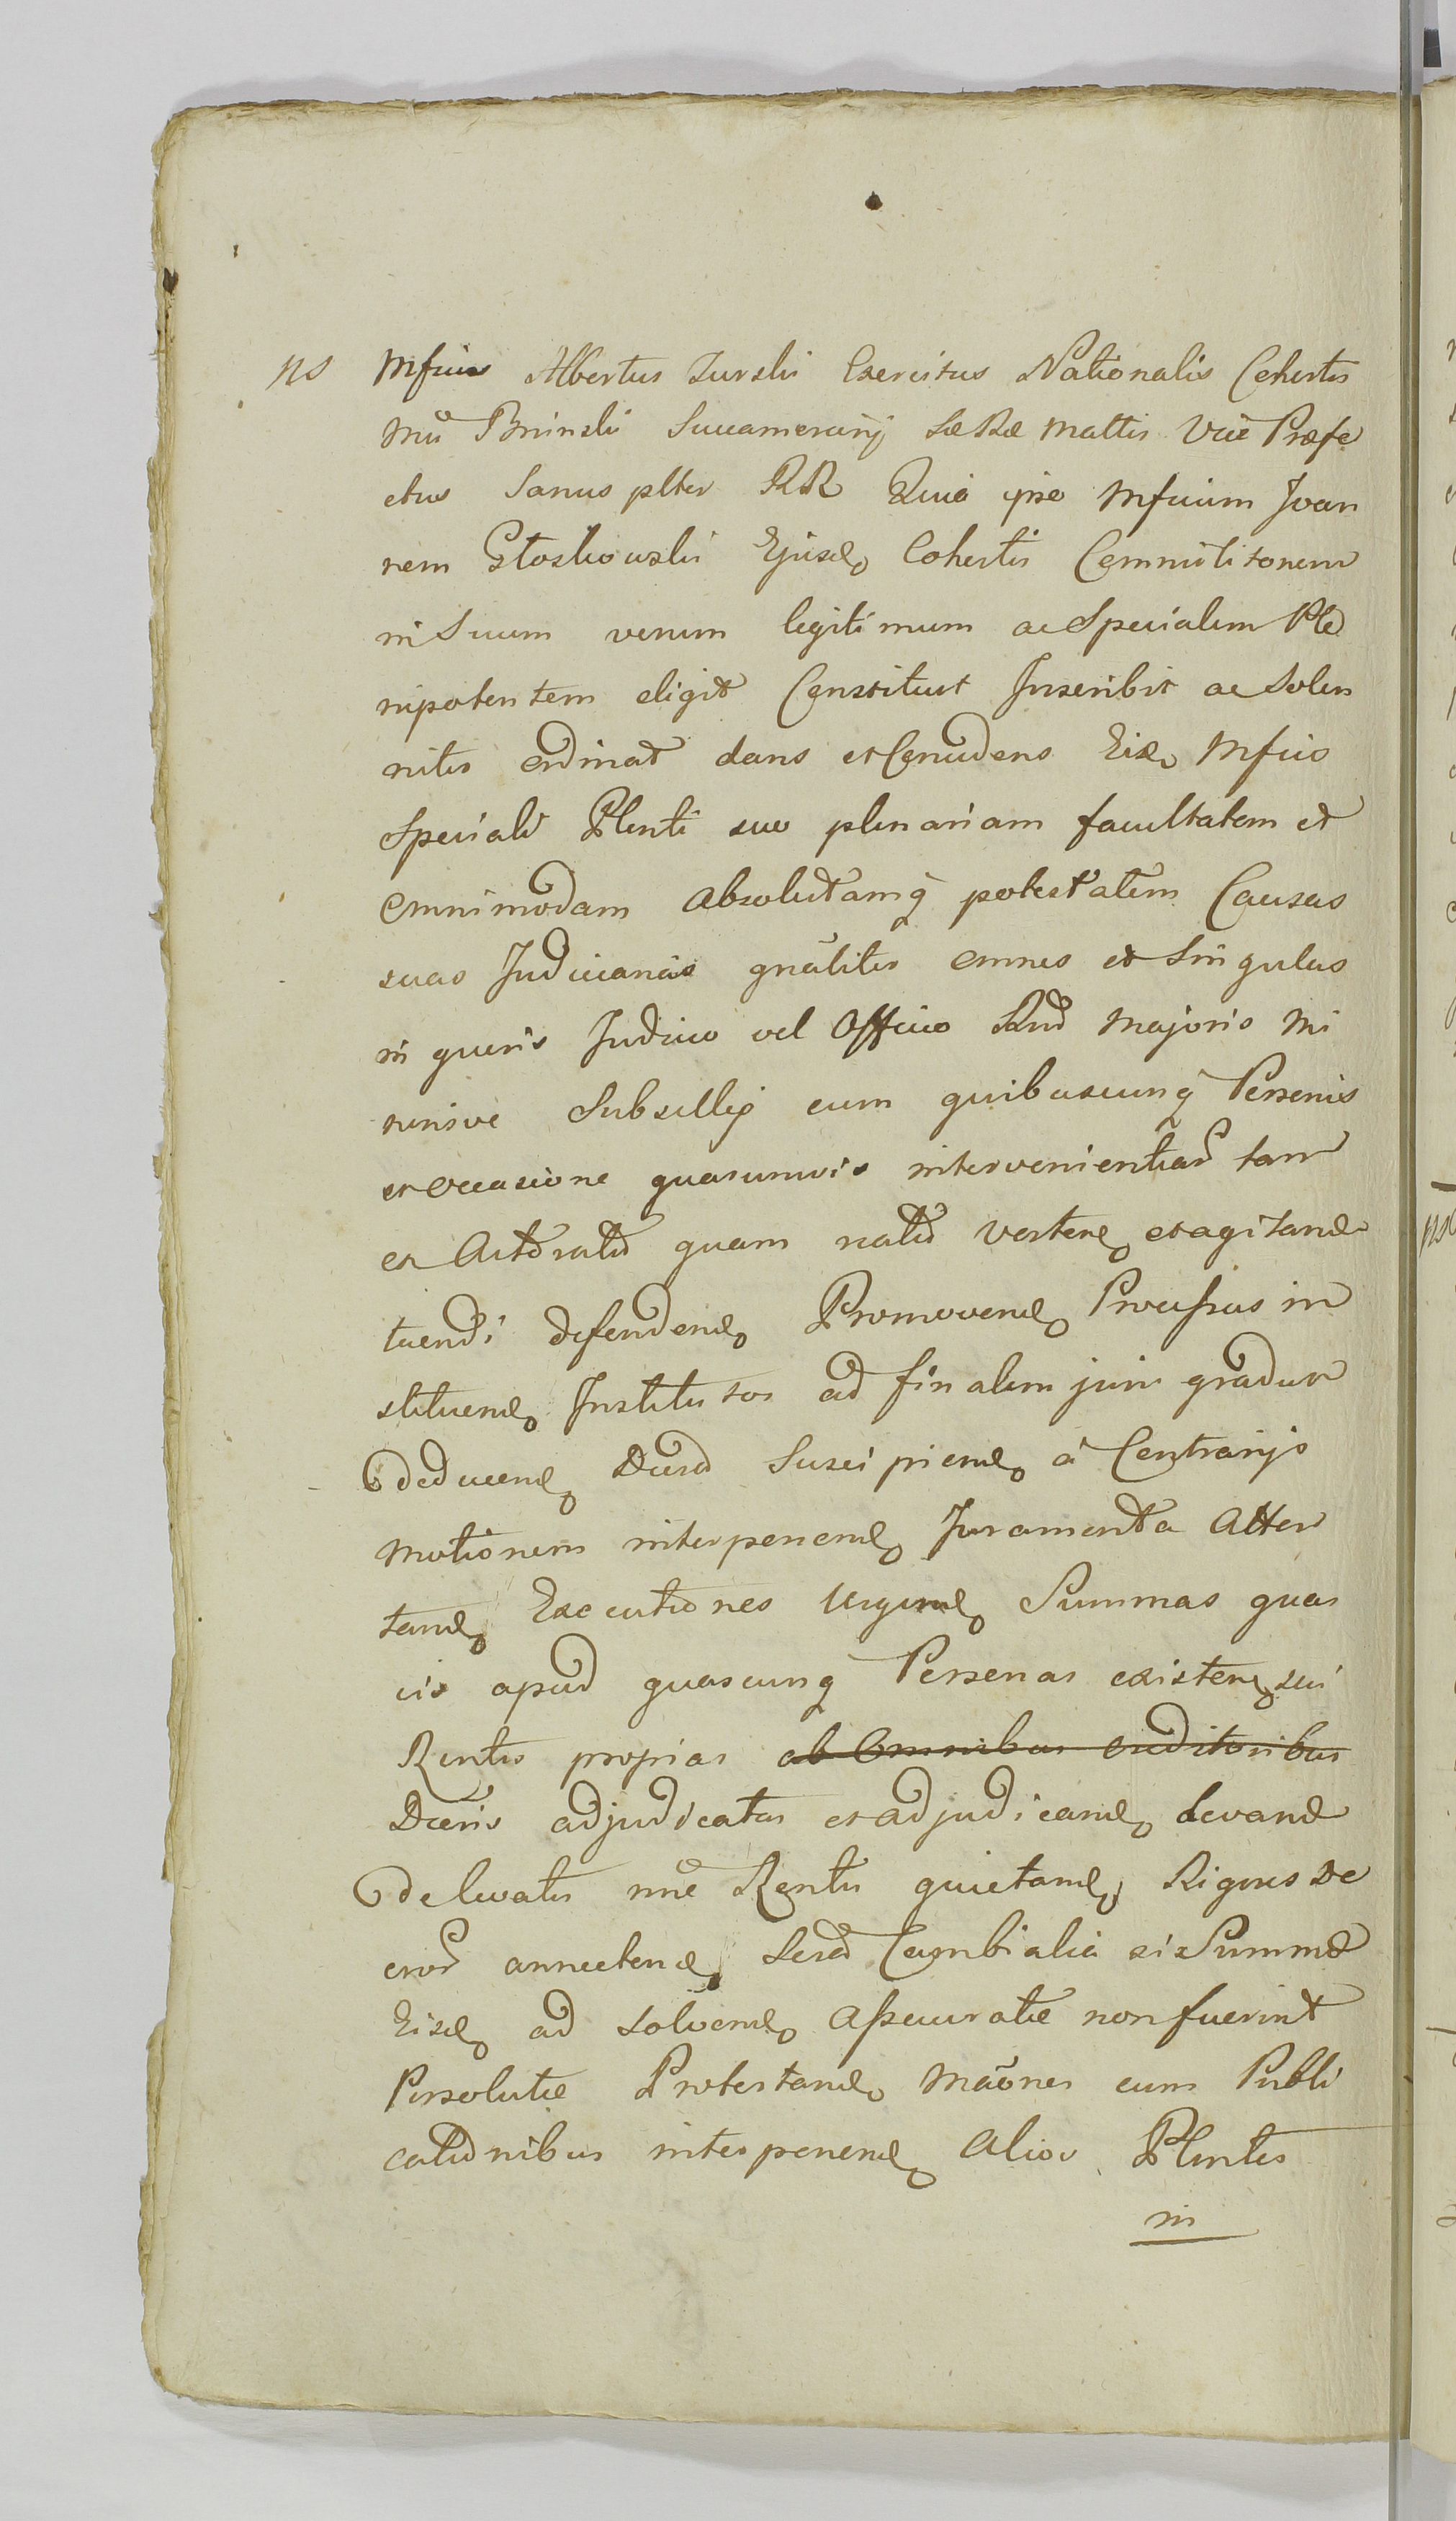 ns Mfcus Albertus Turski Exercitus Nationalis Cohortis
Mci Bninski Succamerarij SæRæ Mattis Vice Præfe
ctus Sanus plter RR Quia ipse Mfcum Joan
nem Stoskowski Ejusd Cohortis Commilitonem
in Suum verum legitimum ac Specialem Ple
nipotentem eligit Constituit Inscribit ac Solen
niter ordinat dans et Concedens Eid Mfco
Speciali Plenti suo plenariam facultatem et
omnimodam absolutamq potestatem Causas
suas Judiciarias gnaliter omnes et Singulas
in quovis Judicio vel Officio Rndi Majoris Mi
norisve Subsellij cum quibuscunq Personis
ex occasione quarumvis intervenientiar tam
ex Actoratu quam reatu Vertend et agitand
tuendi defendend Promovend Processus in
stituend Institutos ad finalem juris gradum
deducend Decrd Suscipiend à Contrarijs
Motionem interponend Juramenta Atten
tand Executiones Urgend Summas quas
vis apud quascunq Personas existen sui
Rentis proprias ab Omnibus creditoribus
Dcris adjudicatas et adjudicand levand
de levatis nne Rentis quietand Rigores De
cror annectend Scrd Cambialia si Summæ
Eisd ad solvend assecuratæ non fuerint
Persolutæ Protestand Mãones cum Publi
cationibus interponend alios Plentes
in